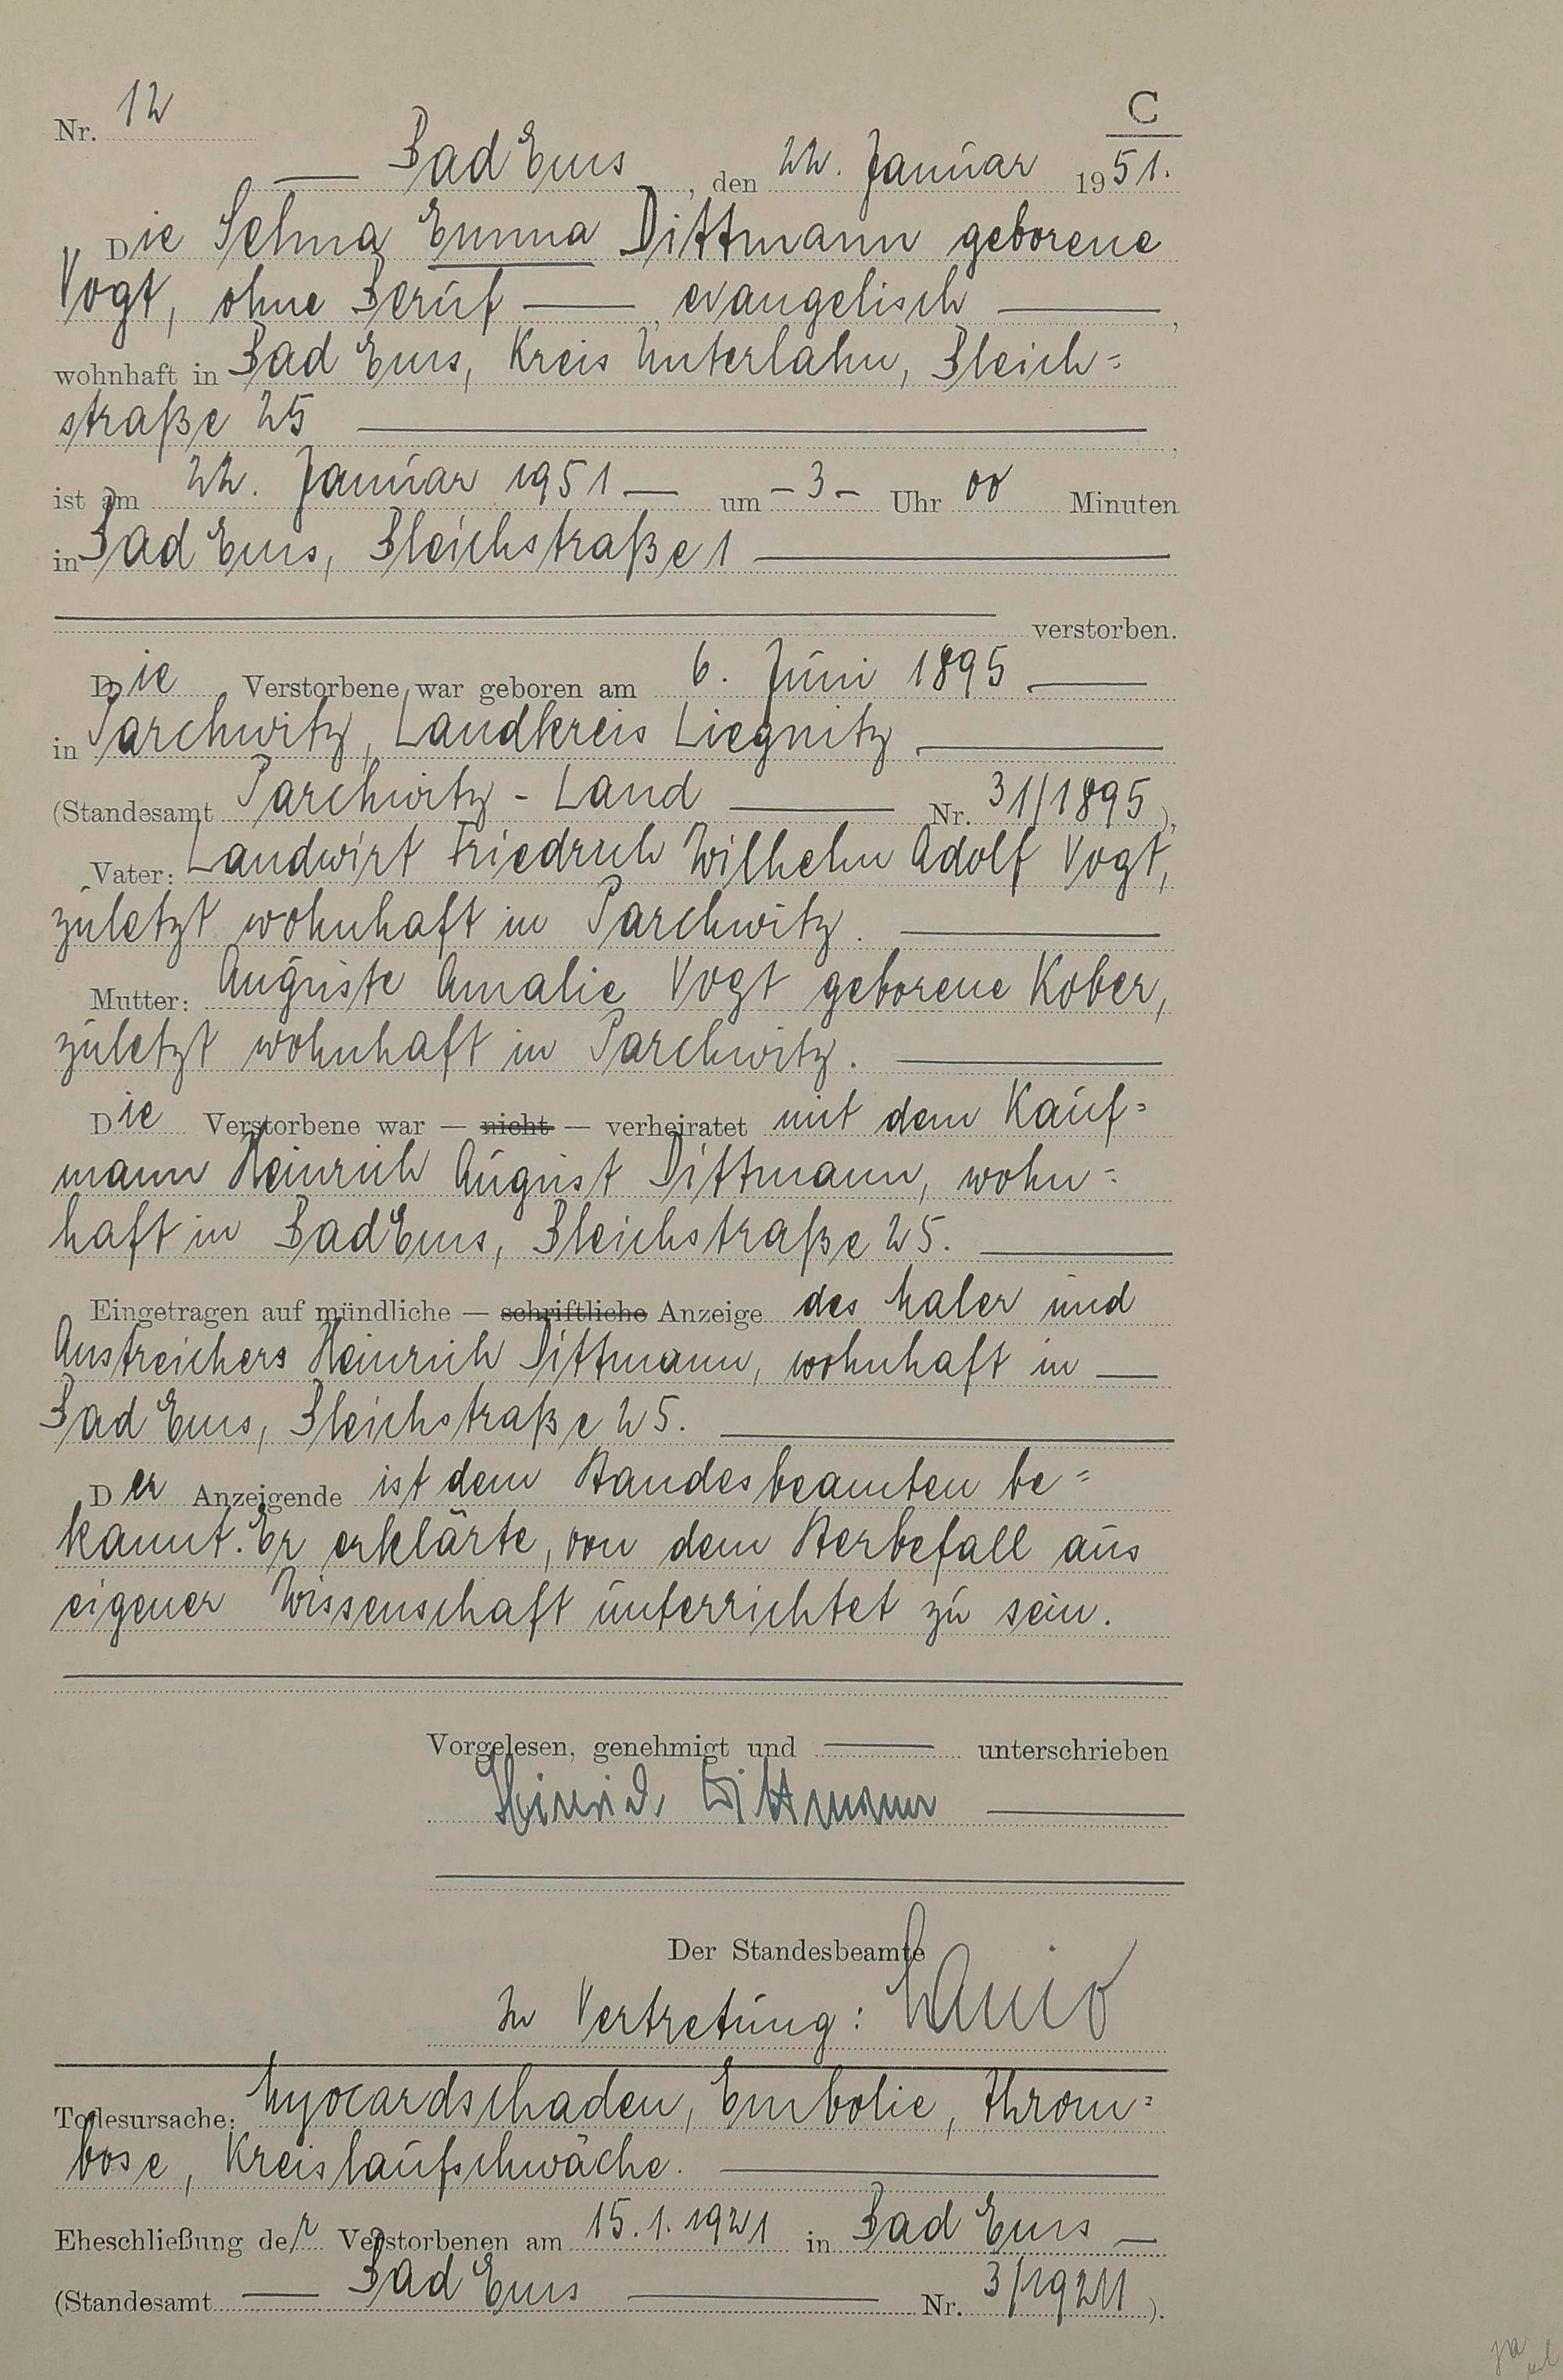 C
Nr. 12
Bad Ems, den 22. Januar 1951.
Die Selma Emma Dittmann geborene
Vogt, ohne Beruf, evangelisch,
wohnhaft in Bad Ems, Kreis Unterlahn, Bleich=
straße 25,
ist am 22. Januar 1951 um - 3 - Uhr 00 Minuten
in Bad Ems, Bleichstraße 1
verstorben.
Die Verstorbene war geboren am 6. Juni 1895
in Parchwitz, Landkreis Liegnitz
(Standesamt Parchwitz - Land Nr. 31/1895),
Vater: Landwirt Friedrich Wilhelm Adolf Vogt,
zuletzt wohnhaft in Parchwitz.
Mutter: Auguste Amalie Vogt geborene Kober,
zuletzt wohnhaft in Parchwitz.
Die Verstorbene war — nicht — verheiratet mit dem Kauf=
mann Heinrich August Dittmann, wohn=
haft in Bad Ems, Bleichstraße 25.
Eingetragen auf mündliche — schriftliche Anzeige des Maler und
Anstreichers Heinrich Dittmann, wohnhaft in
Bad Ems, Bleichstraße 25.
Der Anzeigende ist dem Standesbeamten be=
kannt. Er erklärte, von dem Sterbefall aus
eigener Wissenschaft unterrichtet zu sein.
Vorgelesen, genehmigt und unterschrieben
Heinrich Dittmann
Der Standesbeamte
In Vertretung:
Todesursache: Myocardschaden, Embolie, Throm=
bose, Kreislaufschwäche.
Eheschließung der Verstorbenen am 15.1.1921 in Bad Ems
(Standesamt Bad Ems Nr. 3/1921).